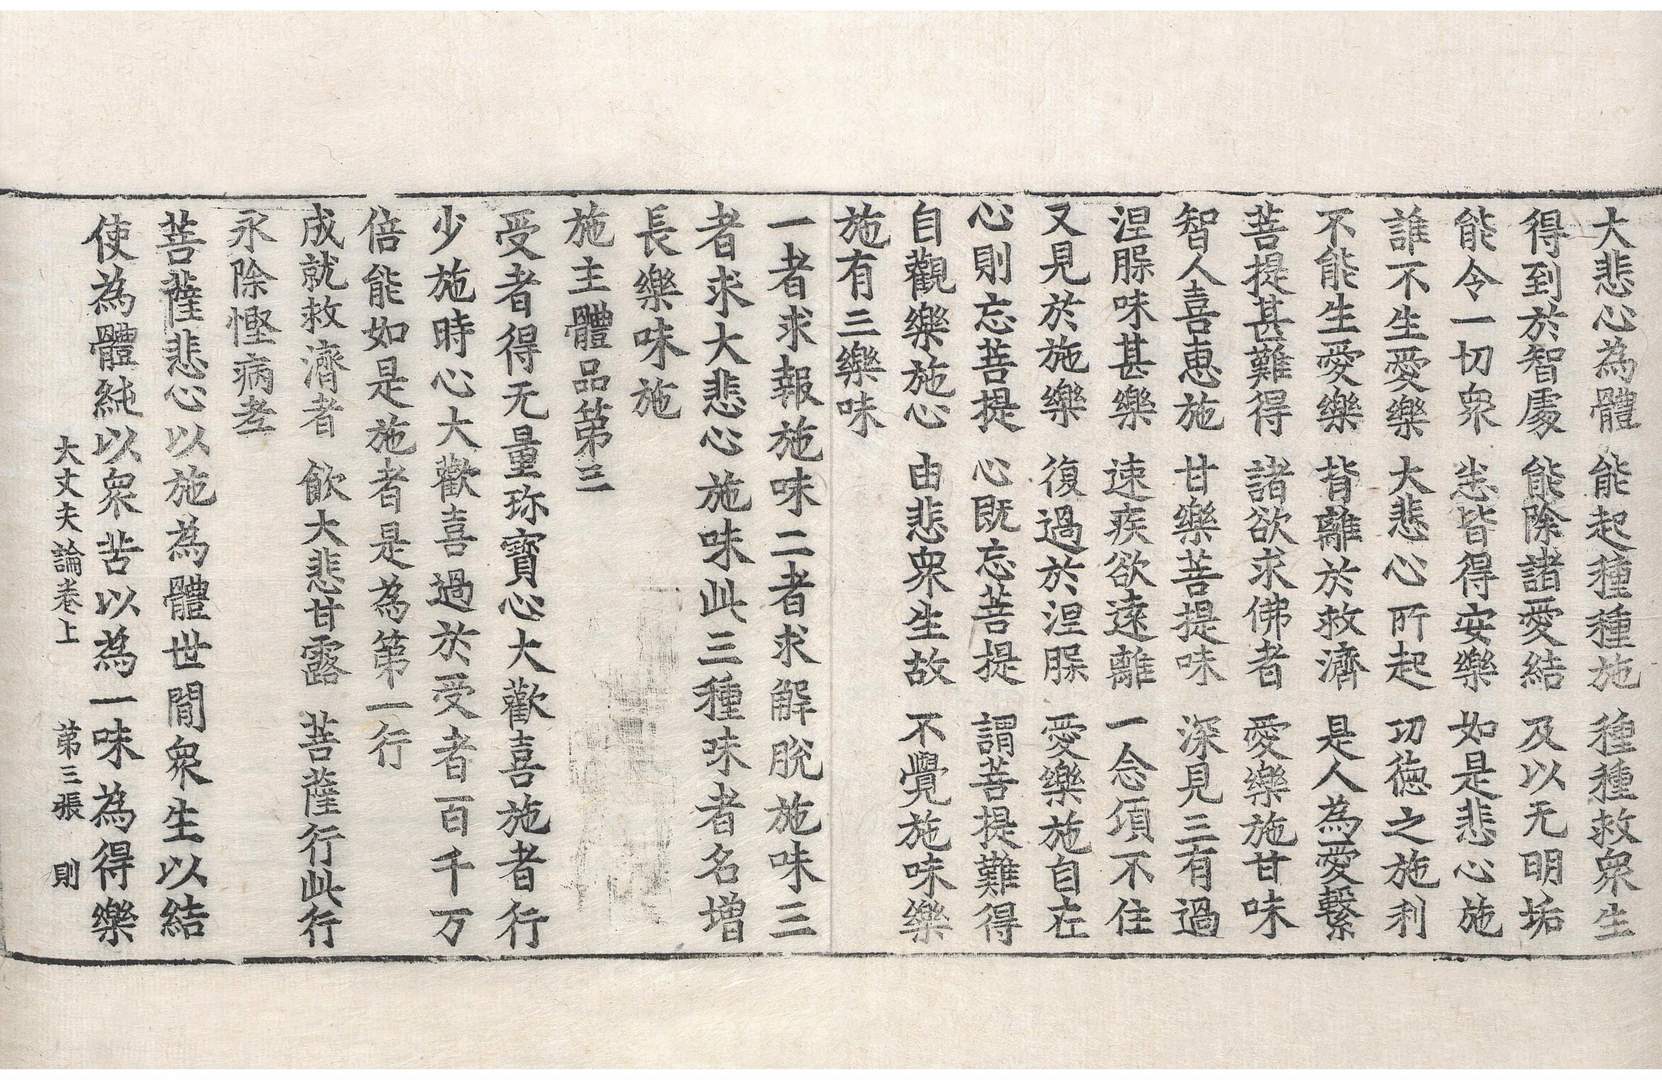 大悲心為體　能起種種施　種種救衆生
得到於智處　能除諸愛結　及以无明垢
能令一切衆　悉皆得安樂　如是悲心施
誰不生愛樂　大悲心所起　功德之施利
不能生愛樂　背離於救濟　是人為愛繫
菩提甚難得　諸欲求佛者　愛樂施甘味
智人喜恵施　甘樂菩提味　深見三有過
涅脲味甚樂　速疾欲遠離　一念頃不住
又見於施樂　復過於涅脲　愛樂施自在
心則忘菩提　心既忘菩提　謂菩提難得
自觀樂施心　由悲衆生故　不覺施味樂
施有三樂味
一者求報施味二者求解脫施味三
者求大悲心施味此三種味者名增
長樂味施
施主體品第三
受者得无量珎寶心大歡喜施者行
少施時心大歡喜過於受者百千万
倍能如是施者是為第一行
成就救濟者　飲大悲甘露　菩薩行此行
永除慳病老
菩薩悲心以施為體世間衆生以結
使為體純以衆苦以為一味為得樂
大丈夫論卷上　第三張　則